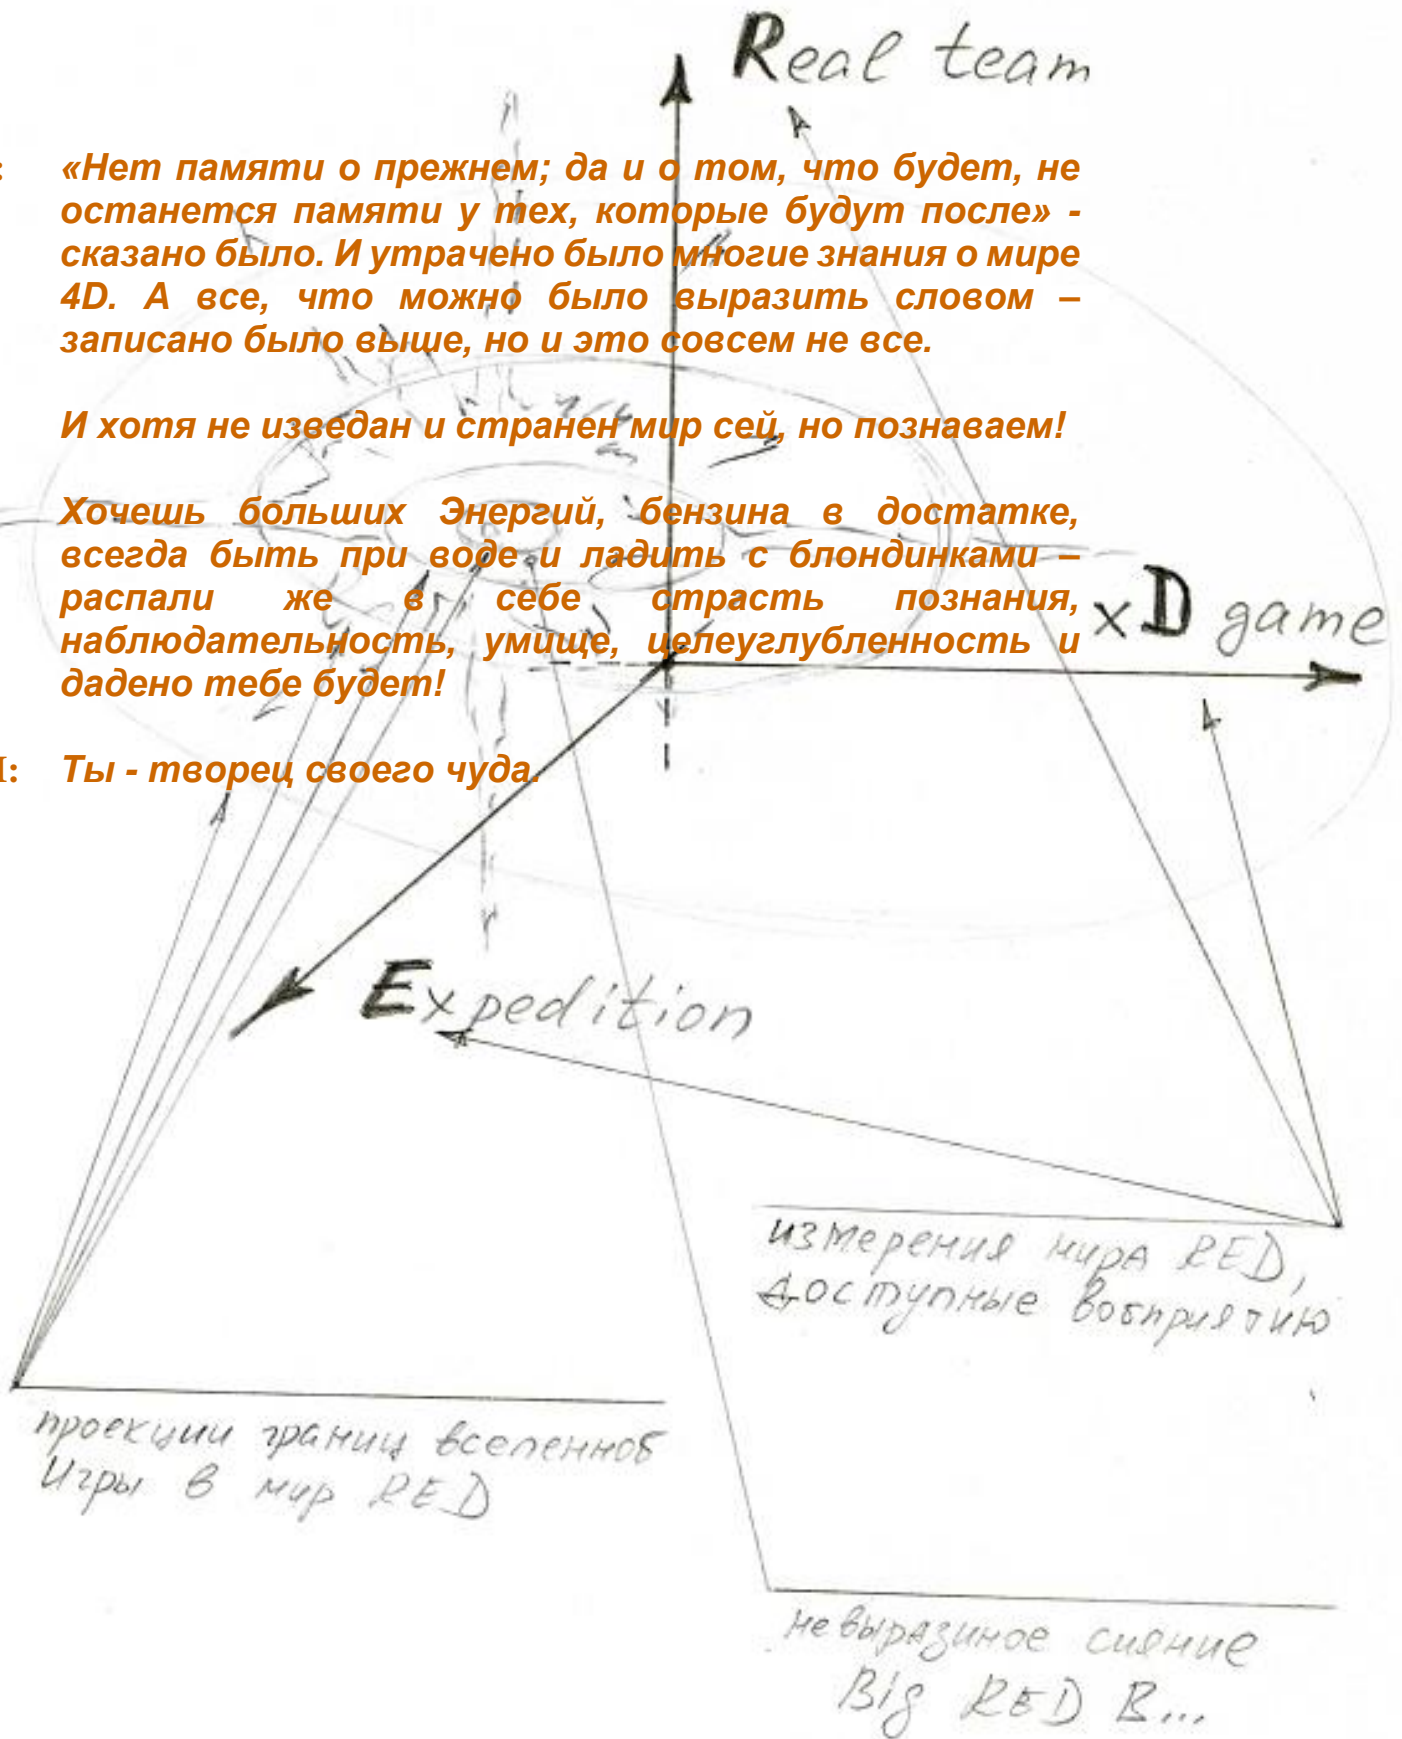 Real team
: «Нет памяти о прежнем; да и о том, что будет, не
останется памяти у тех, которые будут после» -
сказано было. И утрачено было многие знания о мире
4D. А все, что можно было выразить словом –
записано было выше, но и это совсем не все.
И хотя не изведан и странен мир сей, но познаваем!
Хочешь больших Энергий, бензина в достатке,
всегда быть при воде и ладить с блондинками –
распали же в себе страсть познания,
наблюдательность, умище, целеуглубленность и
дадено тебе будет!
xD game
: Ты - творец своего чуда.
Expedition
измерения мира RED,
доступные восприятию
проекции границ вселенной
Игры в мир RED
невыразиное сияние
Big RED B...